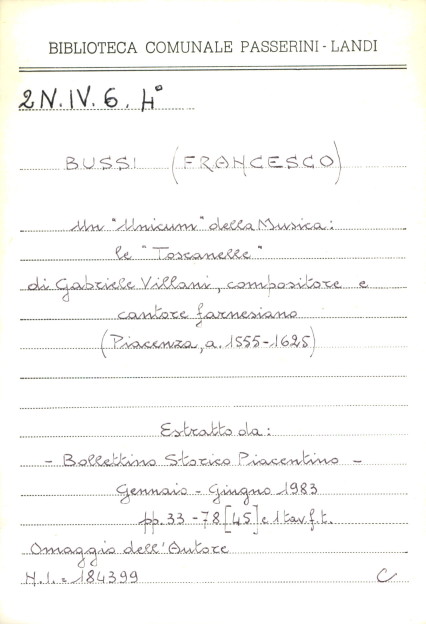 BIBLIOTECA COMUNALE PASSERINI - LANDI
2N.IV.6.4°
BUSSI (FRANCESCO)
Un "Unicum" della Musica:
le "Toscanelle"
di Gabriele Villani, compositore e
cantore farnesiano
(Piacenza, a. 1555-1625)
Estratto da:
- Bollettino Storico Piacentino -
Gennaio - Giugno 1983
pp. 33-78 [45] e 1 tav. f.t.
Omaggio dell'Autore
N.I. = 184399 C